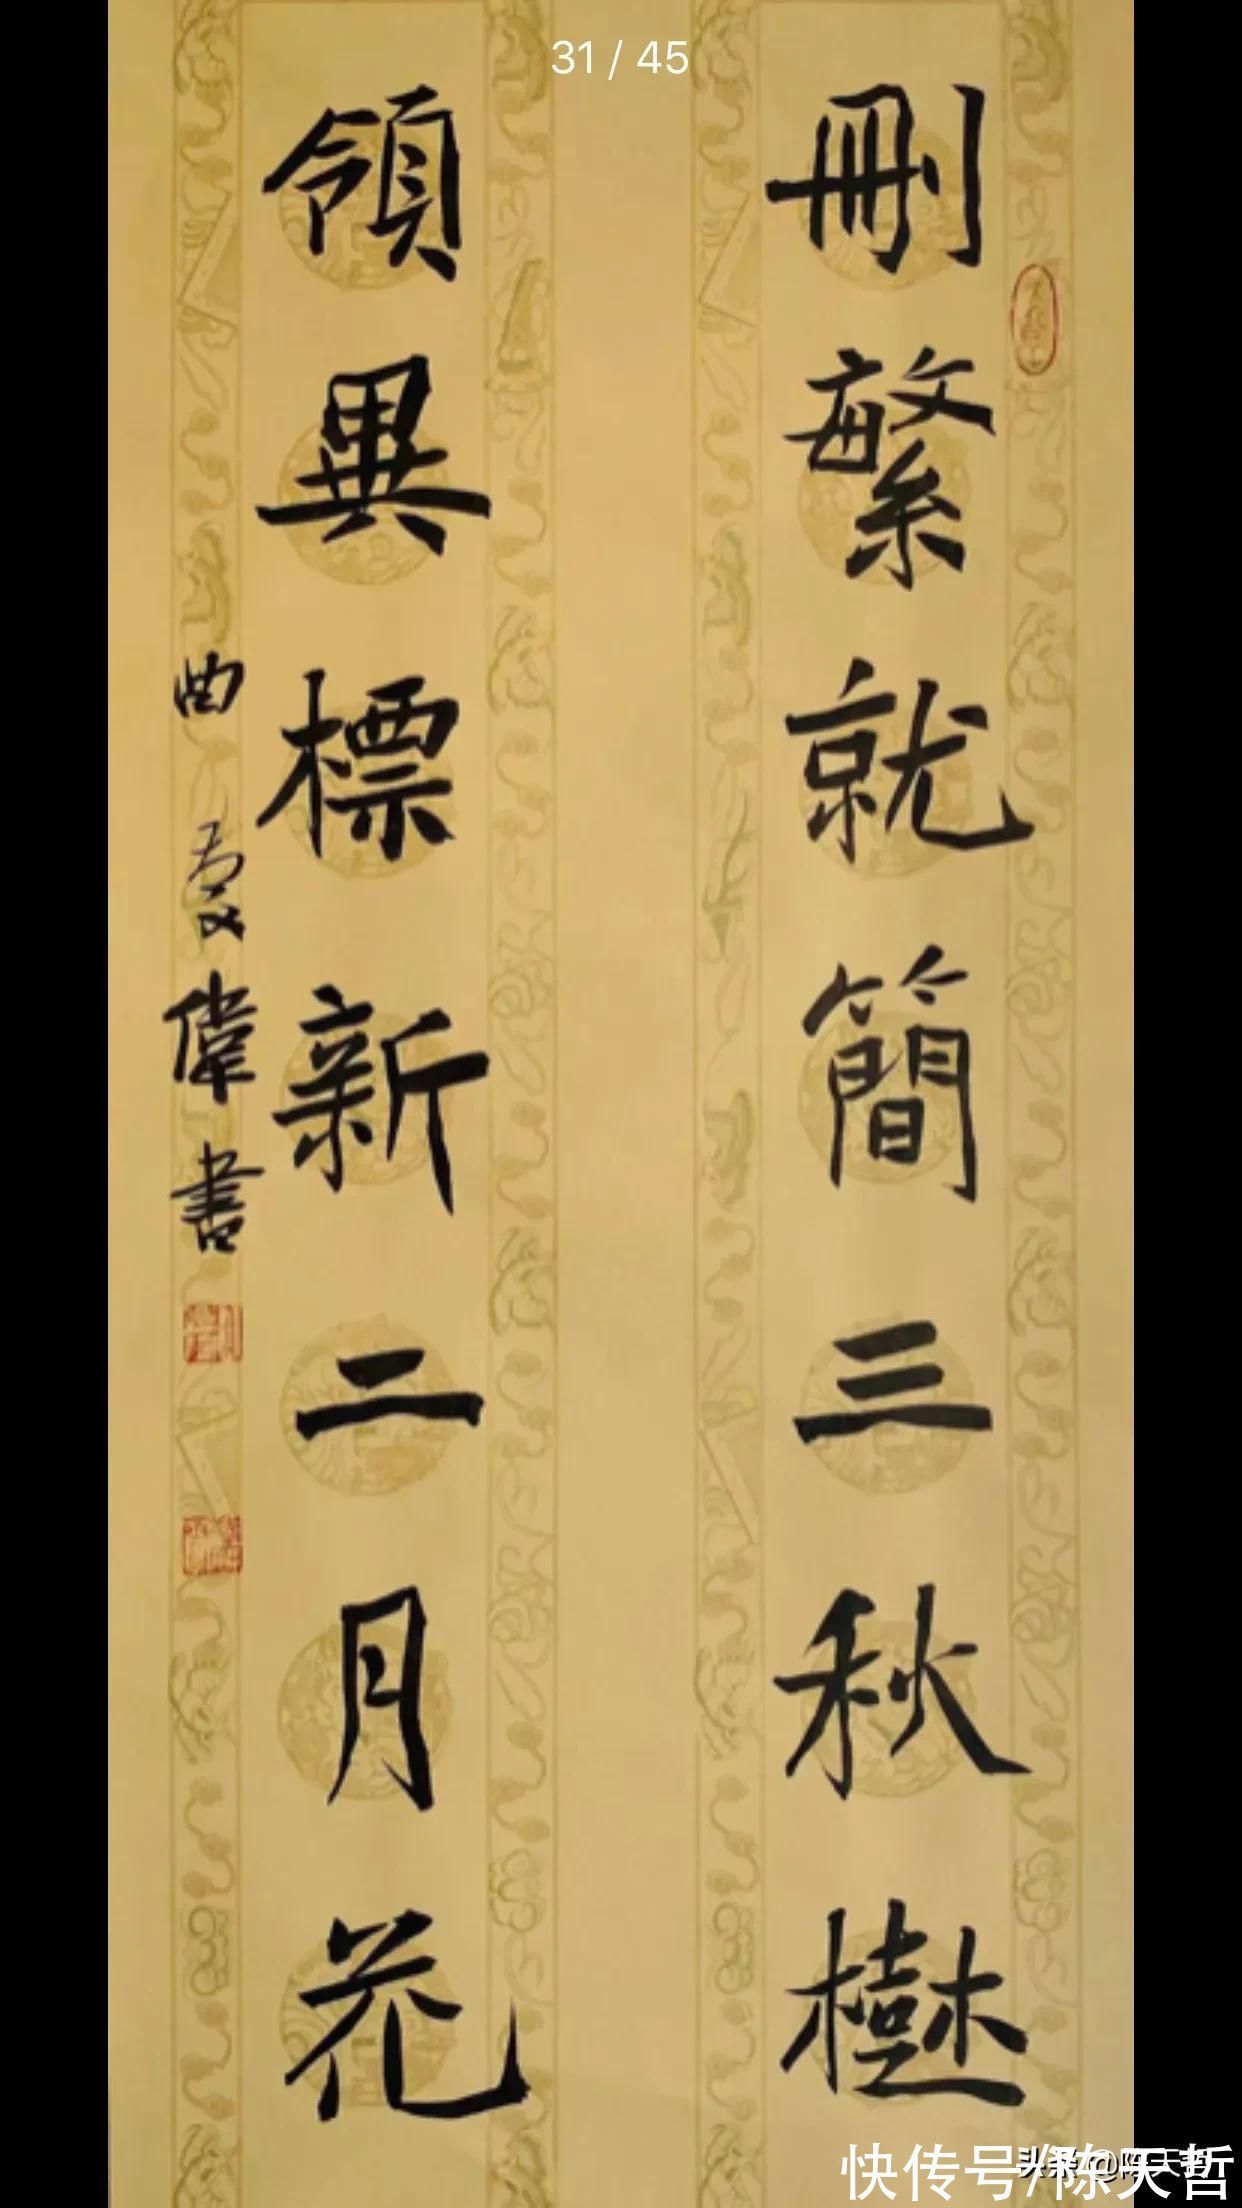 31 / 45
刪繁就簡三秋樹
領異標新二月花
曲 偉書
快传号/陈天哲
头条@陈天哲